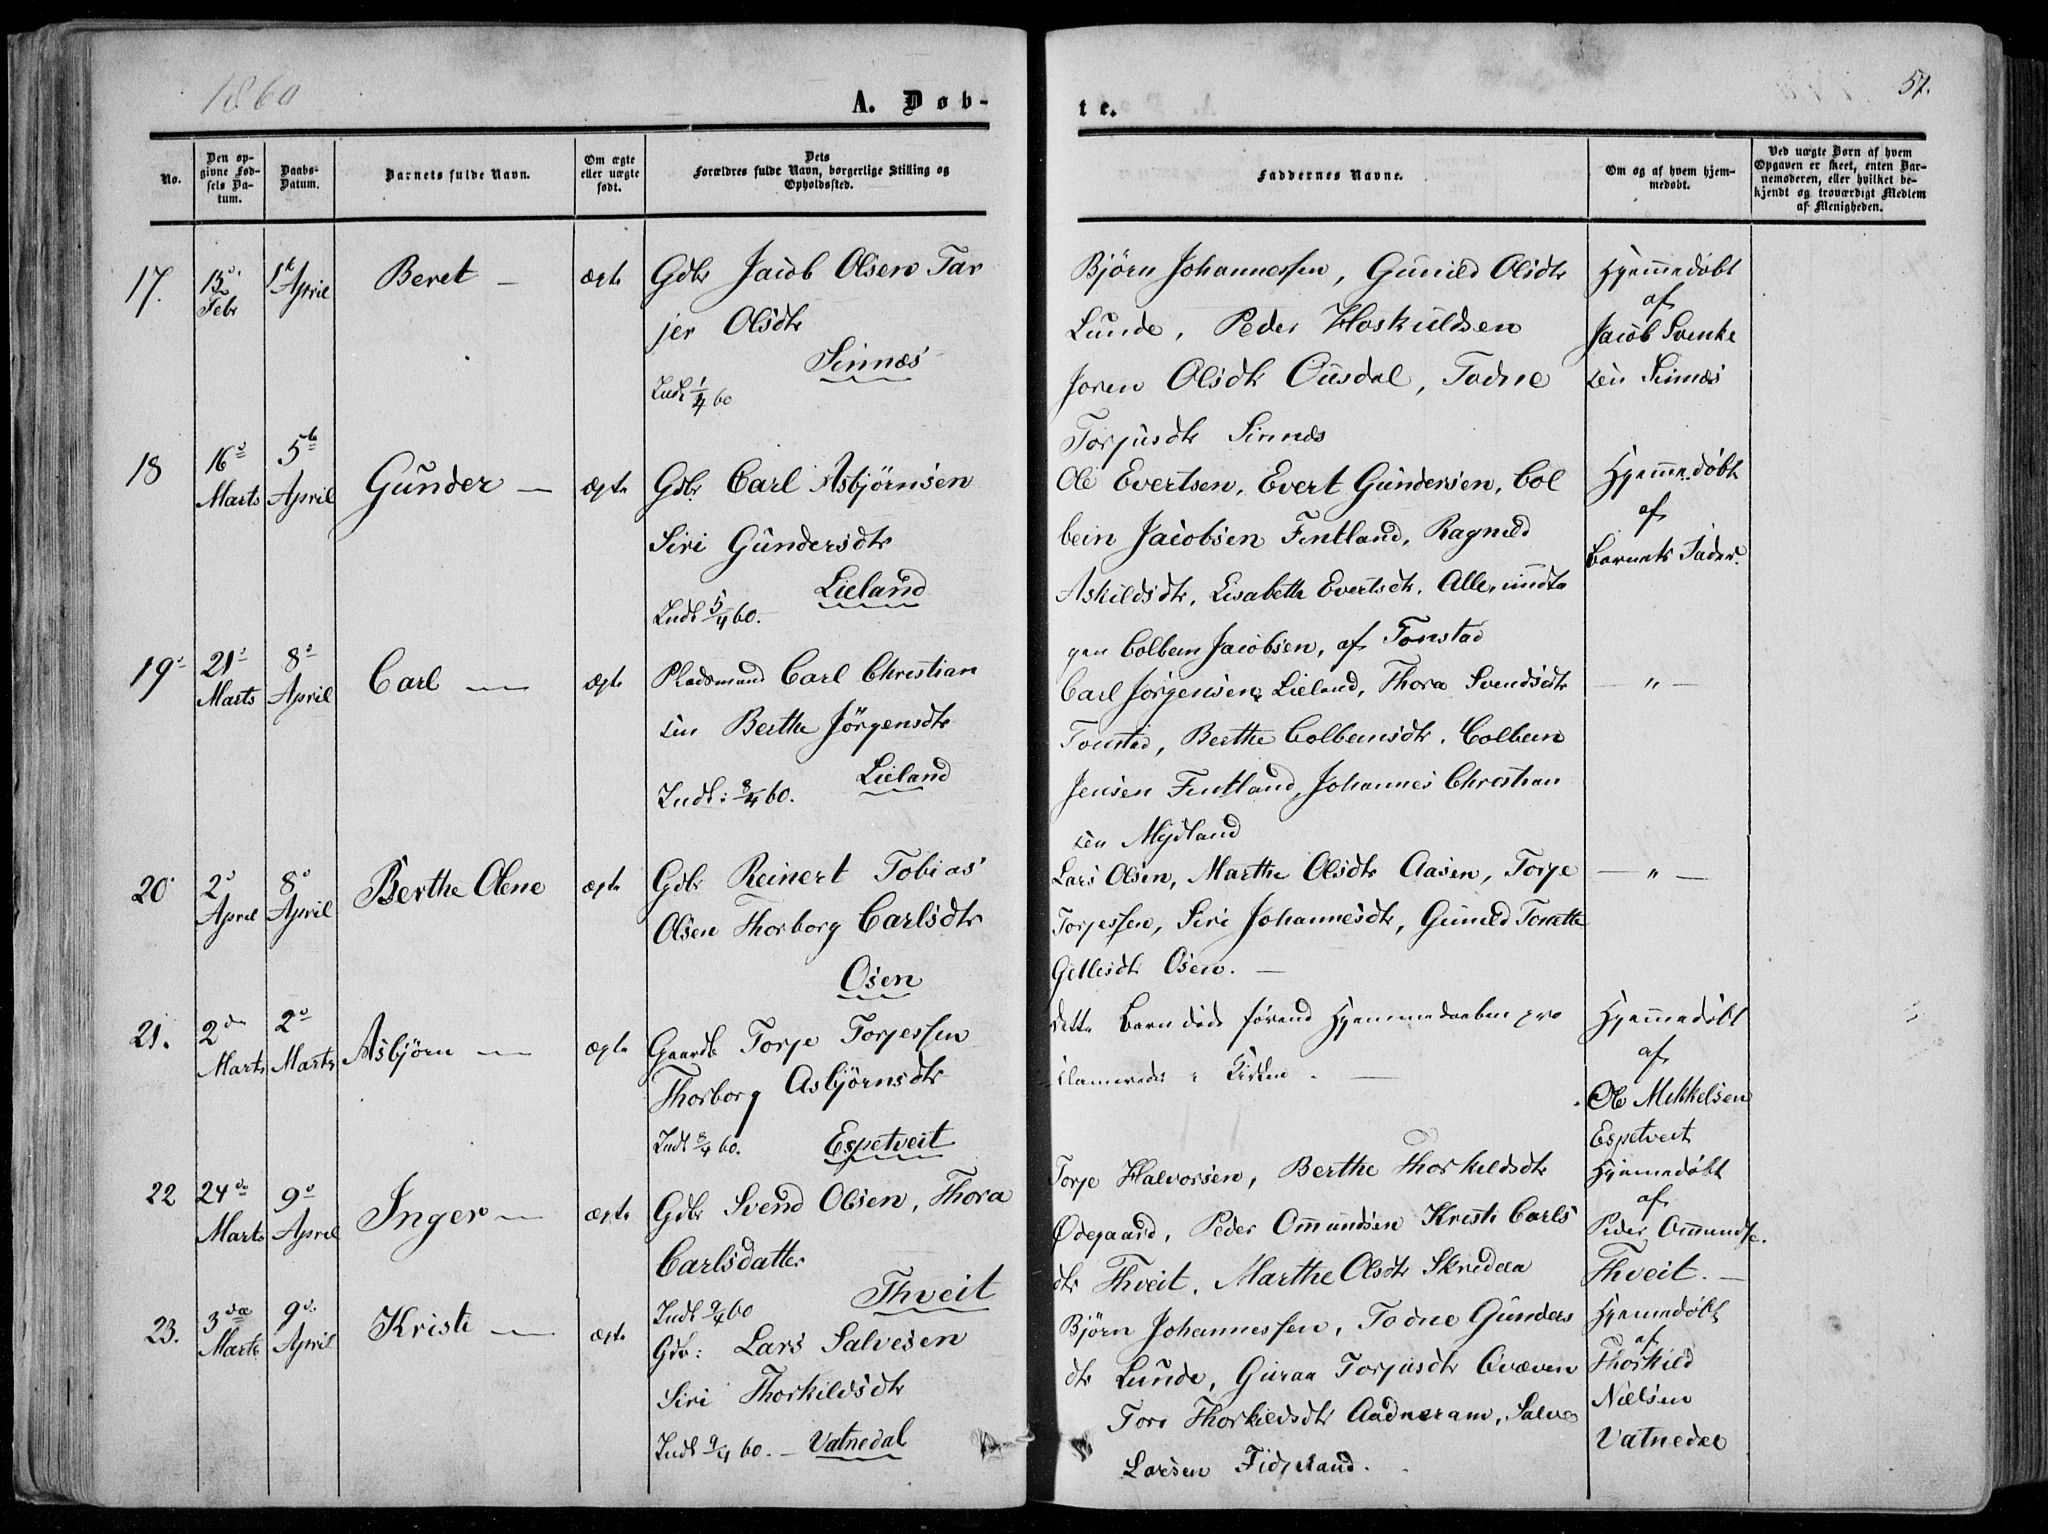 1860
A. Døb-
te.
57.
No.
Den opgivne Fødsels Datum.
Daabs-Datum.
Barnets fulde Navn.
Om ægte eller uægte født.
Dets Forældres fulde Navn, borgerlige Stilling og Opholdssted.
Faddernes Navne.
Om og af hvem hjemmedøbt.
Ved uægte Børn af hvem Opgaven er skeet, enten Barnemoderen, eller hvilket bekjendt og troværdigt Medlem af Menigheden.
17. 13 Febr 1te April Beret — ægte
Gdbr Jacob Olsen Tar
jer Olsdtr
Sinnæs
Indt 1/4 60
Bjørn Johannessen, Gunild Olsdtr
Lunde, Peder Hoskuldsen
Joren Olsdtr Ousdal, Todne
Torjusdtr Sinnæs
Hjemmedøbt
af
Jacob Svenke
sen Sinnæs
18 16de Marts 5te April Gunder — ægte
Gdbr Carl Asbjørnsen
Siri Gundersdtr
Lieland
Indt 5/4 60.
Ole Evertsen, Evert Gundersen, Col
bein Jacobsen Fintland, Ragnild
Askildsdtr, Lisabethe Evertsdtr. Alle, undta
gen Colbein Jacobsen, af Tonstad
Hjemmedøbt
af
Barnets Fader.
19 21 Marts 8 April Carl — ægte
Pladsmand Carl Christian
sen Berthe Jørgensdtr
Lieland
Indt: 8/4 60.
Carl Jørgensen Lieland, Thora Svendsdtr
Tonstad, Berthe Colbeinsdtr. Colbein
Jensen Fintland, Johannes Christian
sen Mydland
— " —
20 2 April 8 April Berthe Olene ægte
Gdbr Reinert Tobias
Olsen Thorborg Carlsdtr
Osen
Lars Olsen, Marthe Olsdtr Aasen, Torje
Torjessen, Siri Johannesdtr, Gunild Tonette
Osen. —
— " —
21. 2den Marts 2 Marts Asbjørn — ægte
Gaardb Torje Torjessen
Thorborg Asbjørnsdtr
Indt 8/4 60. Espetveit
dette Barn døde førend Hjemmedaaben pro
clameredes i Kirken. —
Hjemmedøbt
af
Ole Mikkelsen
Espetveit
22 24de Marts 9 April Inger — ægte
Gdbr Svend Olsen, Thora
Carlsdatter
Thveit
Indt 9/4 60
Torje Halvorsen, Berthe Thorkildsdtr
Ødegaard, Peder Ommundsen Kristi Carls
dtr Thveit. Marthe Olsdtr Skredaa
Hjemmedøbt
af
Peder Ommundse.
Thveit. —
23. 3die Marts 9 April Kristi — ægte
Gdb: Lars Salvesen
Siri Thorkildsdtr
Indt 9/4 60. — Vatnedal
Bjørn Johannessen, Todne Gunders
dtr Lunde, Guraa Torjusdtr Qvæven
Toro Thorkildsdtr Aadneram, Salve
Larsen Fidjeland.
Hjemmedøbt
af
Thorkild
Nielsen
Vatnedal